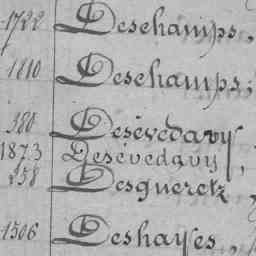 1722 Deschamps,
1810 Deschamps,
380 Desévedavy
1873 Desévedavy,
258 Desgueretz,
1506 Deshayes,